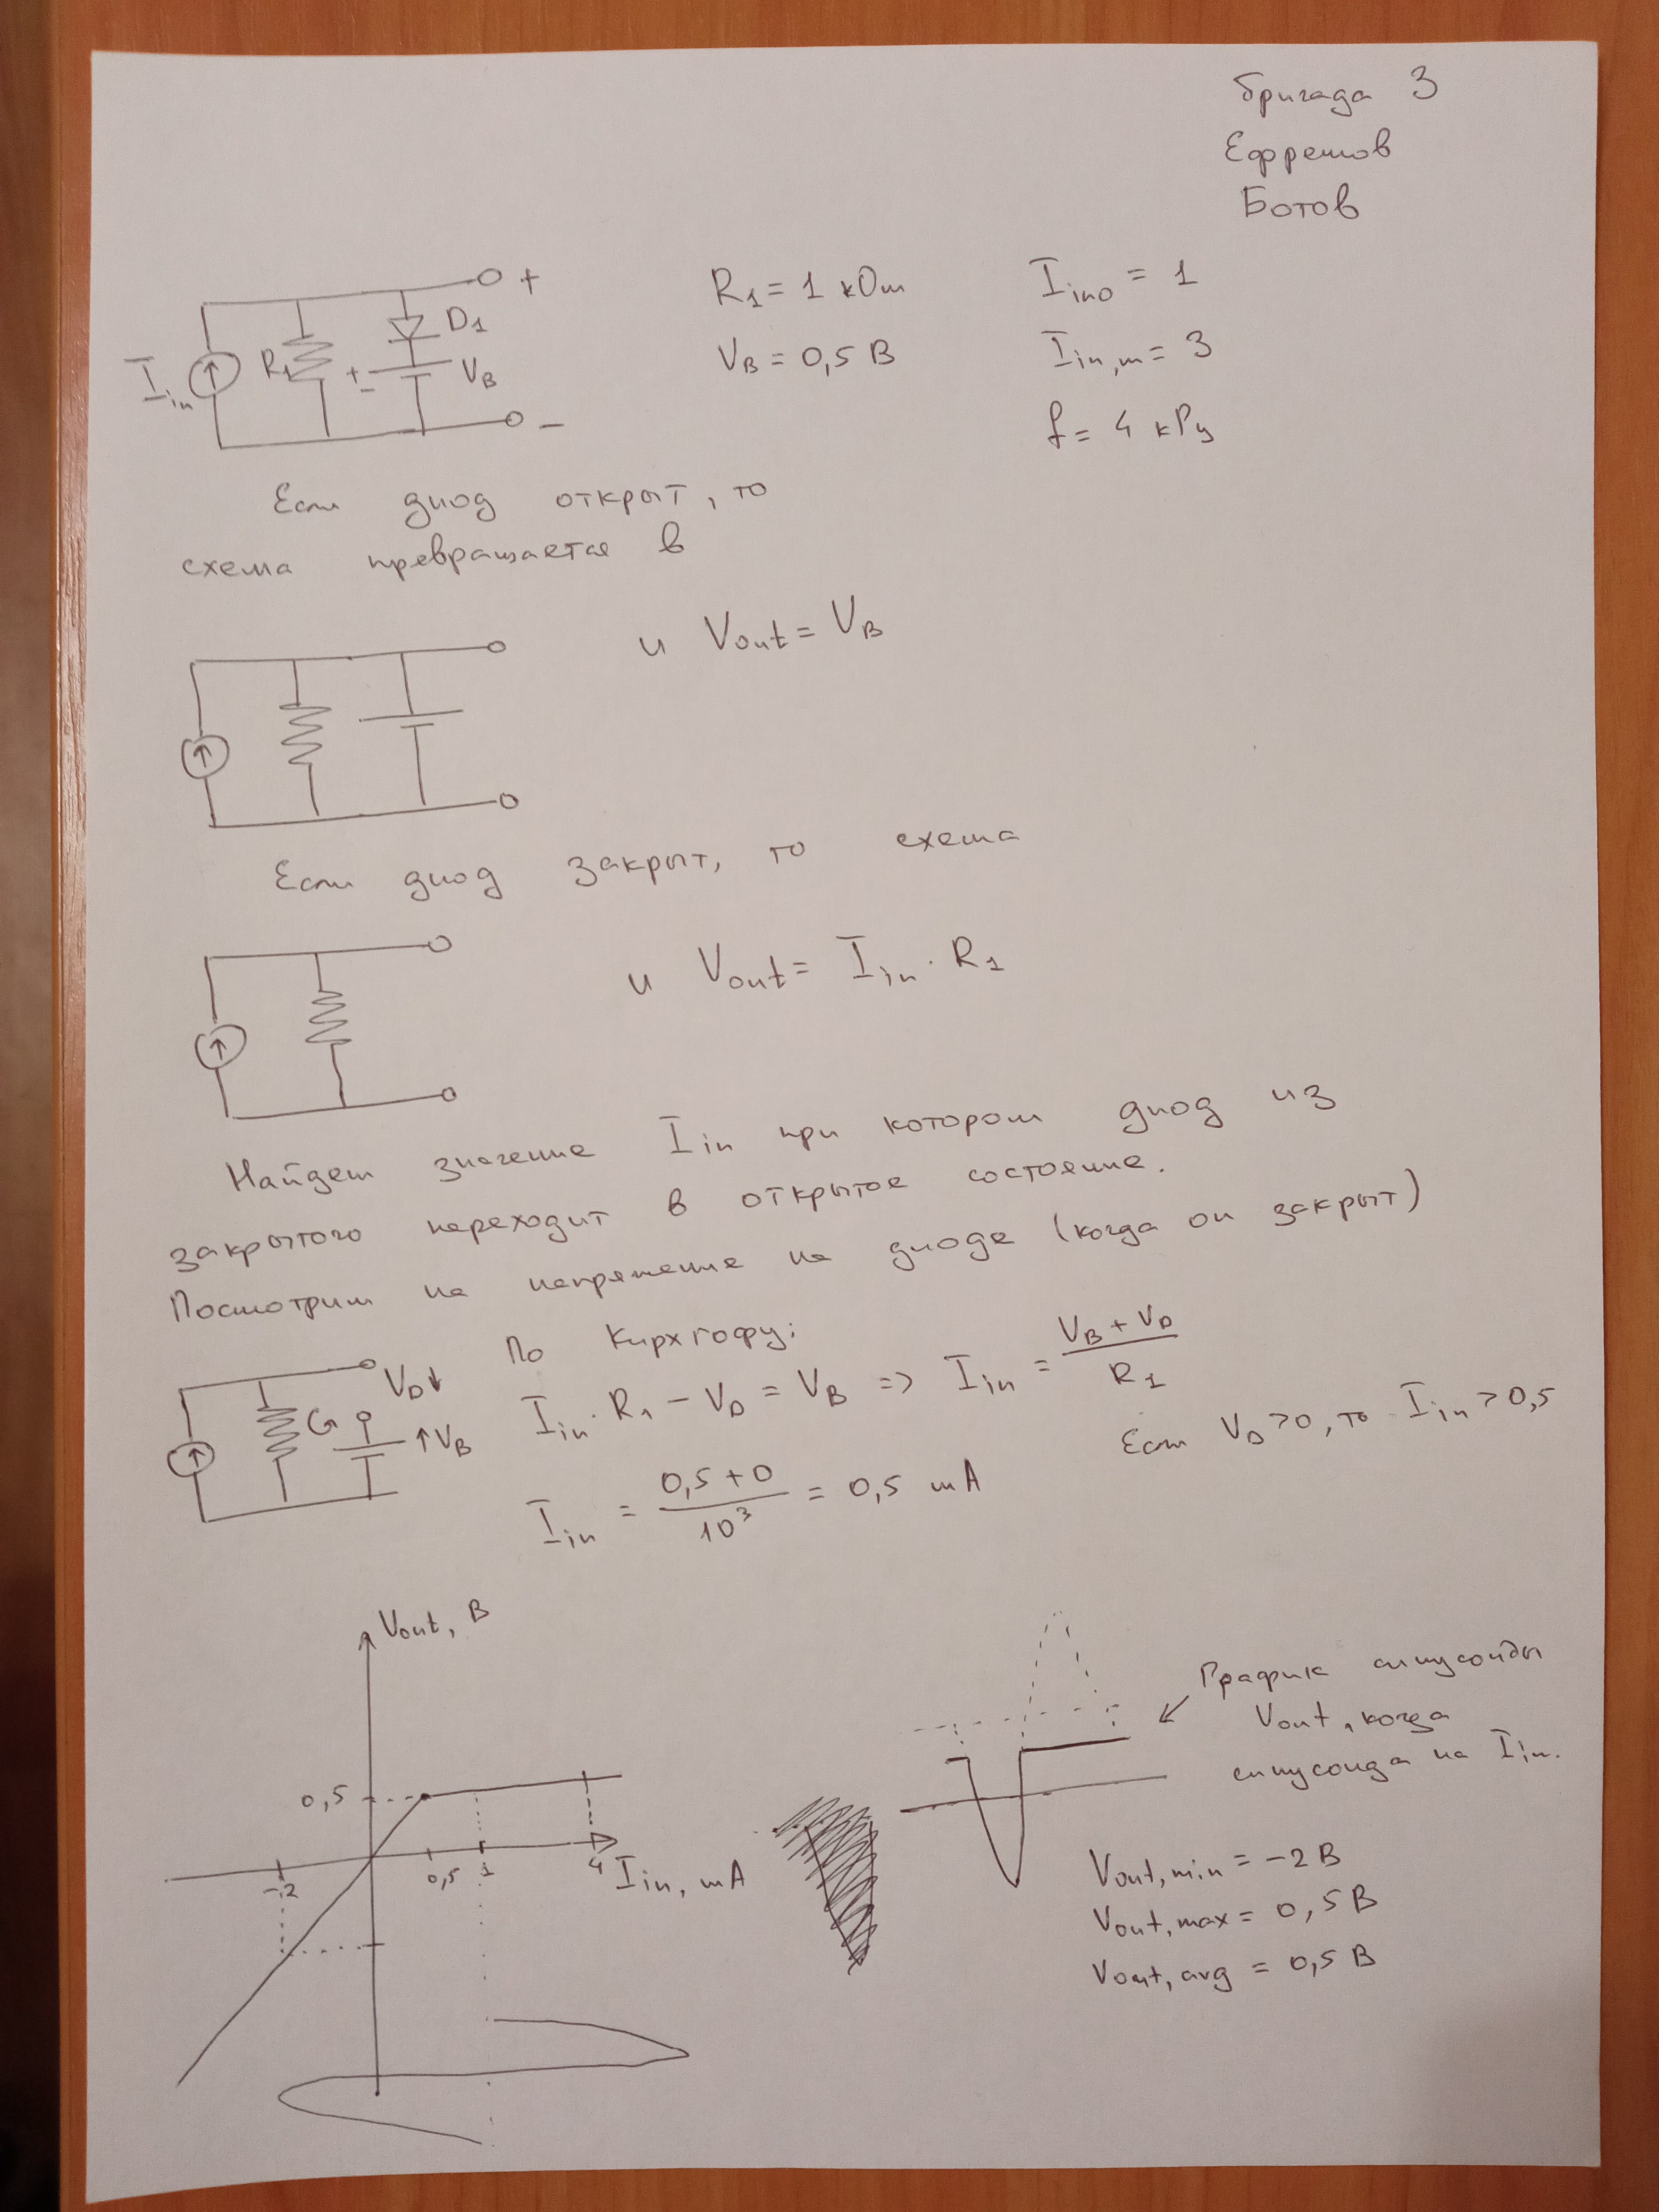 бригада 3
Ефремов
Ботов
I_in R_1 D_1 + - V_B + -
R_1 = 1 кОм
V_B = 0,5 В
I_in0 = 1
I_in,m = 3
f = 4 кГц
Если диод открыт, то
схема превращается в
и V_out = V_B
Если диод закрыт, то схема
и V_out = I_in · R_1
Найдем значение I_in при котором диод из
закрытого переходит в открытое состояние.
Посмотрим на напряжение на диоде (когда он закрыт)
V_D↓ ↑V_B
По Кирхгофу:
I_in · R_1 - V_D = V_B => I_in = (V_B + V_D) / R_1
Если V_D > 0, то I_in > 0,5
I_in = (0,5 + 0) / 10^3 = 0,5 mA
V_out, В
0,5
-2 0,5 1 4 I_in, mA
График синусоиды
V_out, когда
синусоида на I_in.
V_out,min = -2 В
V_out,max = 0,5 В
V_out,avg = 0,5 В